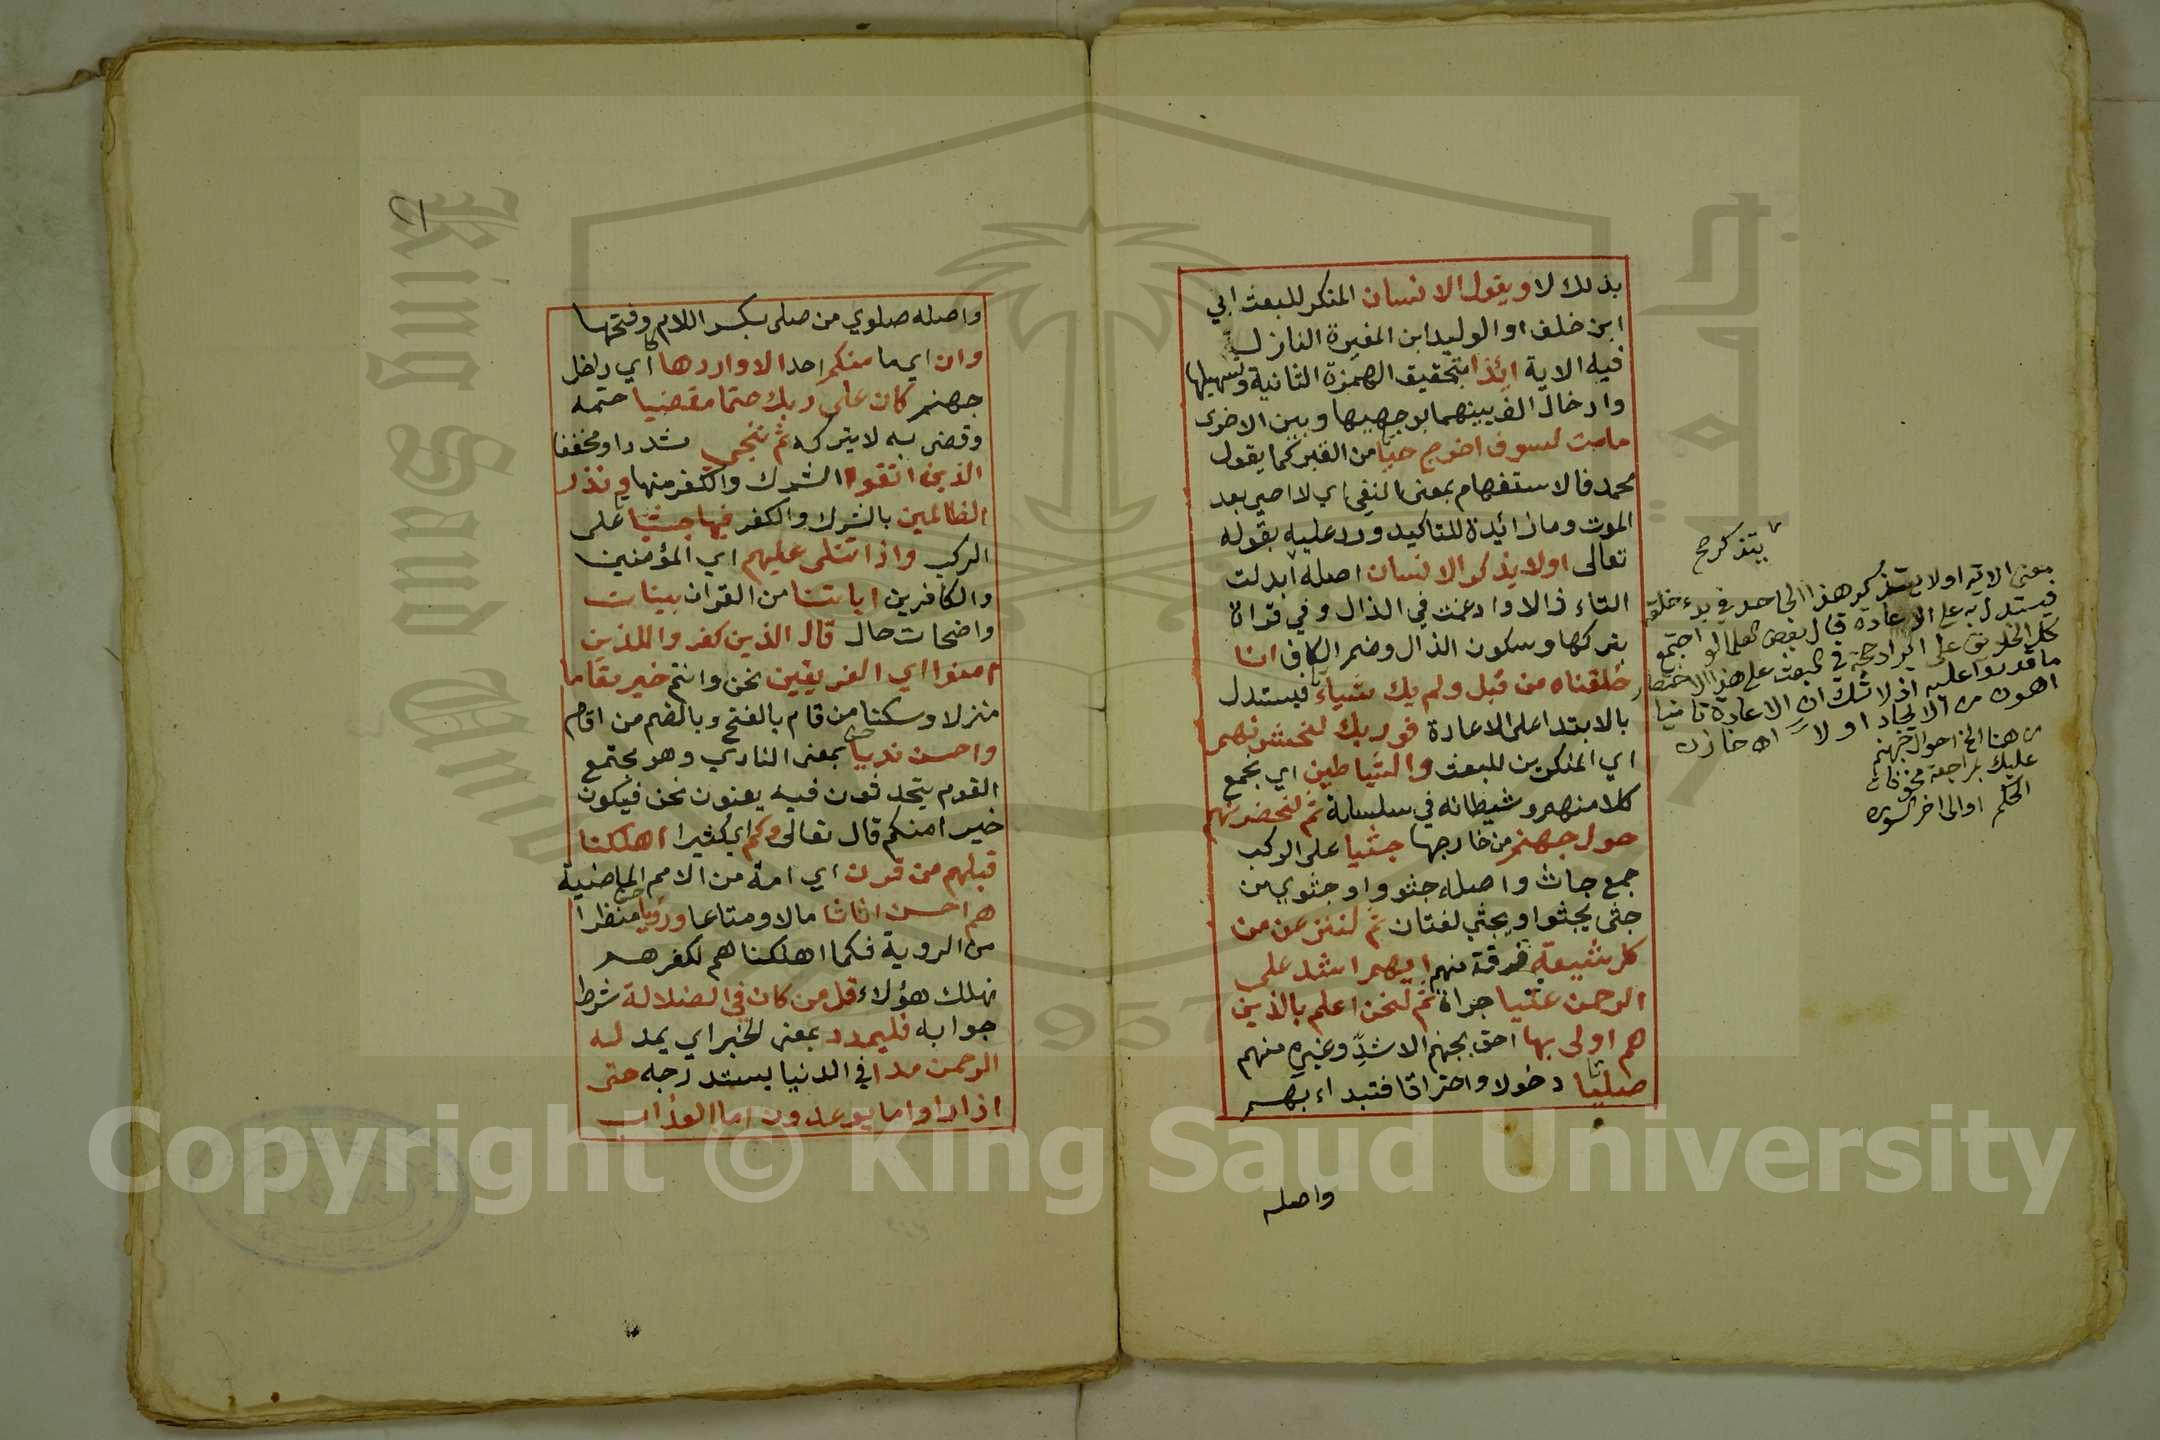 بذلك لا ويقول الانسان المنكر للبعث ابي
ابن خلف او الوليد ابن المغيرة النازل
فيه الاية ائذا بتحقيق الهمزة الثانية وتسهيلها
وادخال الف بينهما بوجهيها وبين الاخرى
مامت لسوف اخرج حيا من القبر كما يقول
محمد فالاستفهام بمعنى النفي اي لا احيى بعد
الموت وما زائدة للتاكيد ورد عليه بقوله
تعالى اولا يذكر الانسان اصله ابدلت
التاء ذالا وادغمت في الذال وفي قراة
بتركها وسكون الذال وضم الكاف انا
خلقناه من قبل ولم يك شياء فيستدل
بالابتدا على الاعادة فوربك لنحشرنهم
اي المنكرين للبعث والشياطين اي نجمع
كلا منهم وشيطانه في سلسلة ثم لنحضرنهم
حول جهنم من خارجها جثيا على الركب
جمع جاث واصله جثوو او جثوي من
جثى يجثوا ويجثي لغتان ثم لننزعن من
كل شيعة فرقة منهم ايهم اشد على
الرحمن عتيا جراة ثم لنحن اعلم بالذين
هم اولى بها احق بجهنم الاشد وغيره منهم
صليا دخولا واحتراقا فتبداء بهم
واصله
يتذكر صح
معنى الاية اولا يتذكر هذا الجاحد في بدء خلقه
فيستدل به على الاعادة قال بعض العلما لو اجتمع
كل الخلائق على ايراد حجة في البعث على هذا الاختصار
ما قدروا عليه اذ لا شك ان الاعادة ثانيا
اهون من الايجاد اولا اه خازن
من هنا الى احوال جهنم
عليك بمراجعة
الحكم او الى اخر السورة
واصله صلوي من صلى بكسر اللام وفتحها
وان اي ما منكم احد الا واردها اي داخل
جهنم كان على ربك حتما مقضيا حتمه
وقضى به لا يتركه ثم ننجي مشددا ومخففا
الذين اتقوا الشرك والكفر منها ونذر
الظالمين بالشرك والكفر فيها جثيا على
الركب واذا تتلى عليهم اي المؤمنين
والكافرين اياتنا من القران بينات
واضحات حال قال الذين كفروا للذين
امنوا اي الفريقين نحن وانتم خير مقاما
منزلا ومسكنا من قام بالفتح وبالضم من اقام
واحسن نديا بمعنى النادي وهو مجتمع
القوم يتحدثون فيه يعنون نحن فيكون
خيرا منكم قال تعالى وكم اي كثيرا اهلكنا
قبلهم من قرن اي امة من الامم الماضية
هم احسن اثاثا مالا ومتاعا ورءيا منظرا
من الروية فكما اهلكناهم لكفرهم
نهلك هؤلاء قل من كان في الضلالة شرط
جوابه فليمدد بمعنى الخبر اي يمد له
الرحمن مدا في الدنيا يستدرجه حتى
اذا راوا ما يوعدون اما العذاب
Copyright © King Saud University
King Saud University
1957